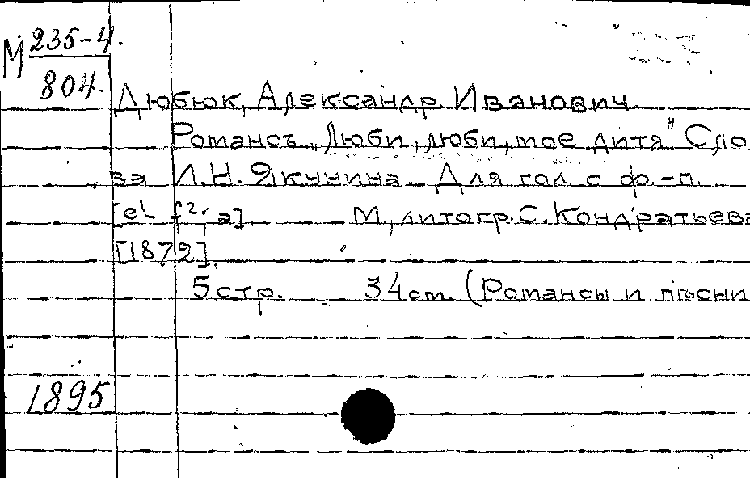 М 235-4.
804.
Дюбюк, Александр Иванович
Романсъ „Люби, люби, мое дитя" Сло
ва Л.Н. Якунина Для гол. с ф.-п.
[e¹ f². a] М, литогр. С. Кондратьева
[1872].
5 стр. 34 cm. (Романсы и пѣсни
1895